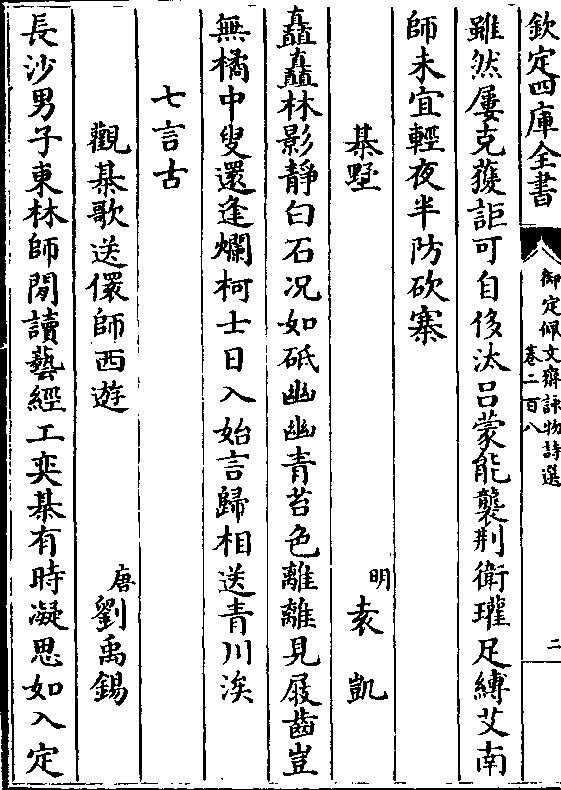 欽定四庫全書
御定佩文齋詠物詩選
卷二百八
二
雖然屢克獲詎可自侈汰吕蒙能襲荆衛瓘足縛艾南
師未宜輕夜半防砍寨
棊墅
明袁凱
矗矗林影靜白石况如砥幽幽青苔色離離見屐齒豈
無橘中叟還逢爛柯士日入始言歸相送青川涘
七言古
觀棊歌送儇師西遊
唐劉禹錫
長沙男子東林師閒讀藝經工奕棊有時凝思如入定